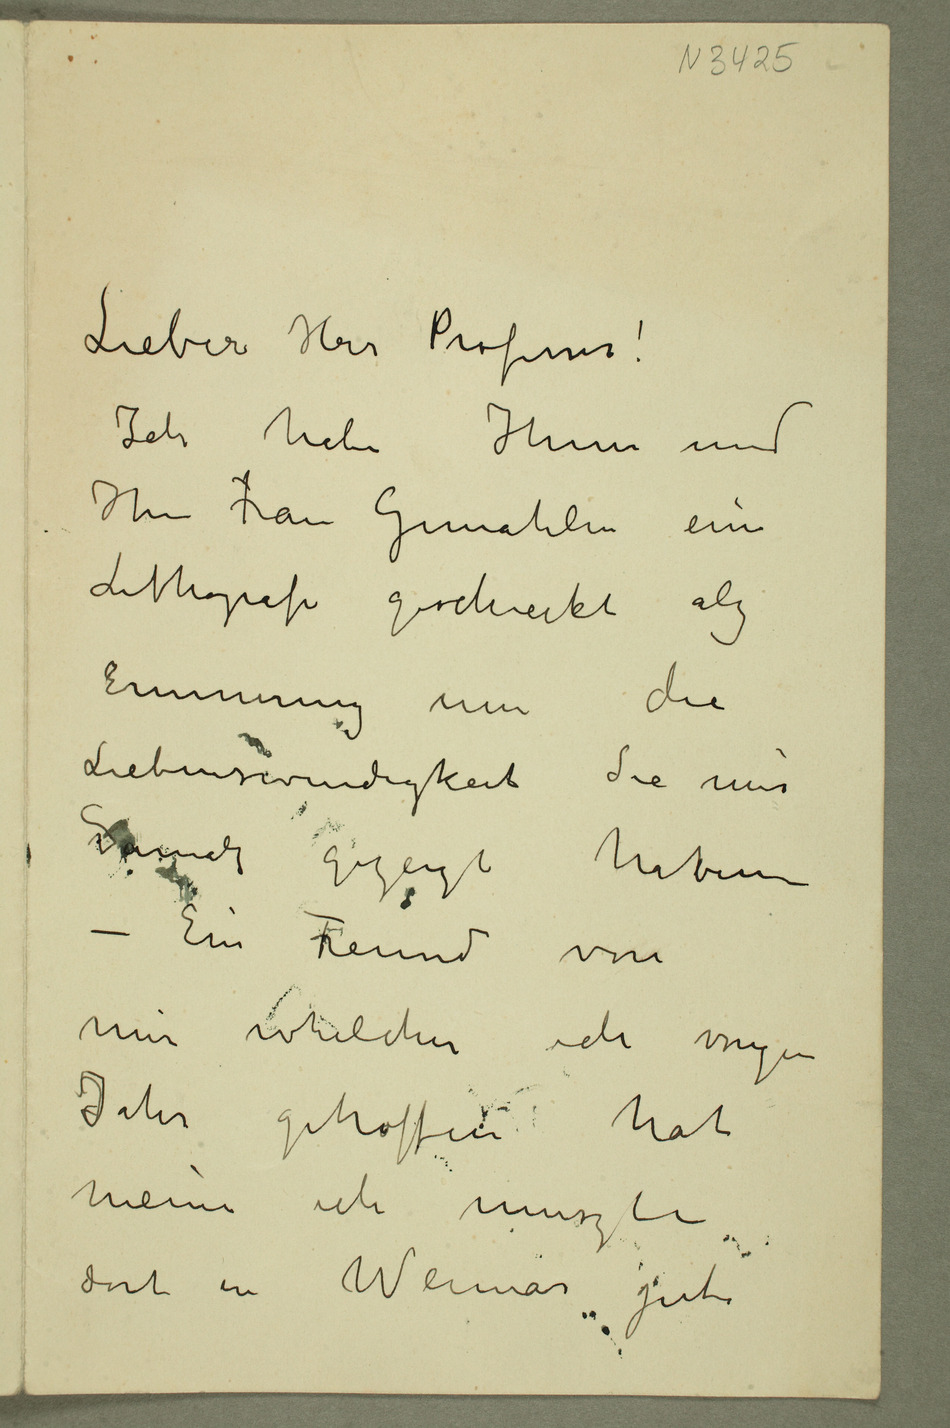 N 3425
Lieber Herr Professer!
Ich habe Ihnen und
Ihre Frau Gemahlin eine
Lithografi geschickt alz
Erinnerung um die
Liebenswurdigkeit Sie mir
Damalz gezeigt haben
– Ein Freund von
mir whelcher ich vorigen
Jahr getroffen hat
meine ich muszte
dort in Weimar jetz